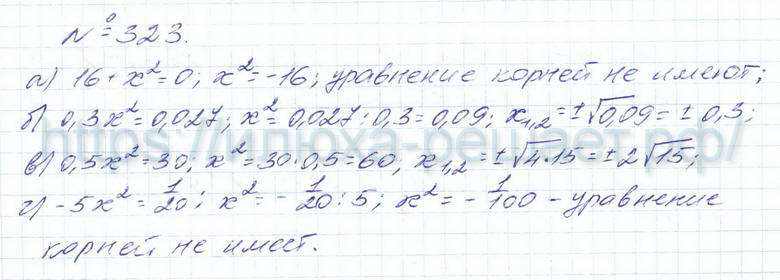 № 323.
а) 16 + x² = 0; x² = -16; уравнение корней не имеют;
б) 0,3x² = 0,027; x² = 0,027 : 0,3 = 0,09; x₁,₂ = ±√0,09 = ± 0,3;
в) 0,5x² = 30; x² = 30 : 0,5 = 60; x₁,₂ = ±√4·15 = ± 2√15;
г) -5x² = 1/20; x² = - 1/20 : 5; x² = - 1/100 - уравнение
корней не имеет.
https://илюха-решает.рф/